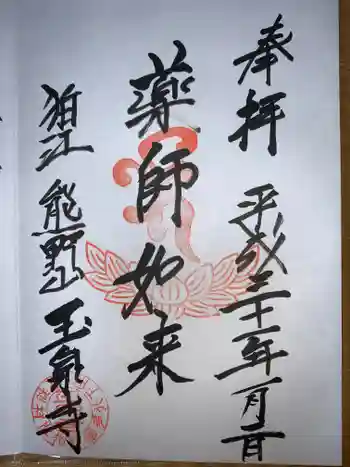 奉拝 平成三十一年一月一日
薬師如来
狛江 熊野山 玉泉寺